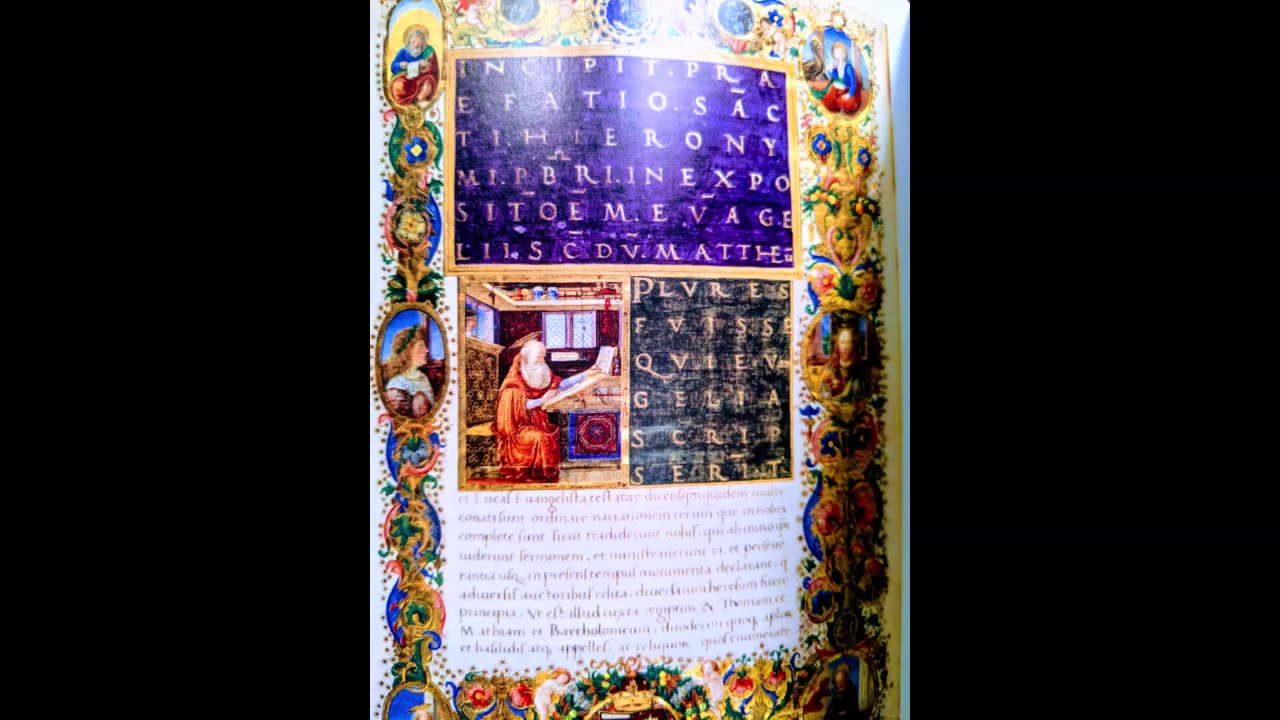 INCIPIT. PRA
EFATIO. SĀC
TI. HIERONY
MI. PBRI. IN EXPO
SITOĒM. EVAGE
LII. SC̄DV̄. MATTHEū
PLVRES
FVISSE
QVI EV
GELIA
SCRIP
SERĪT
et Lucas Euangelista testatur dicens quidem multi
conati sunt ordinare narrationem rerum que in nobis
complete sunt sicut tradiderunt nobis, qui ab initio ipi
uiderunt sermonem, et ministrauerunt ei et perseue
rantia usq in presens tempus monumenta declarant. q
a diuersis auctoribus edita, diuersarum heresum fuere
principia. Vt est illud iuxta egiptios & Thomam et
Mathiam et Bartholomeum, duodecim quoq aplor
et basilidis atq appelles. ac reliquor quos enumerare